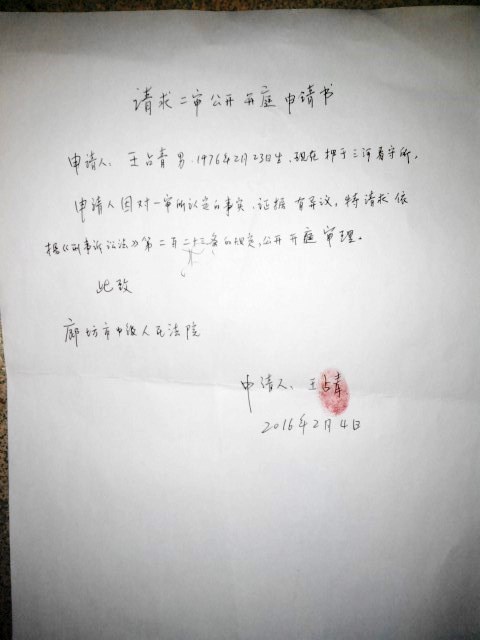 请求二审公开开庭申请书
申请人、王占青 男、1976年2月23日生、现在押于三河看守所,
申请人因对一审所认定的事实、证据有异议,特请求依
据《刑事诉讼法》第二百二十三条的规定,公开开庭审理。
此致
廊坊市中级人民法院
申请人、王占青
2016年2月4日